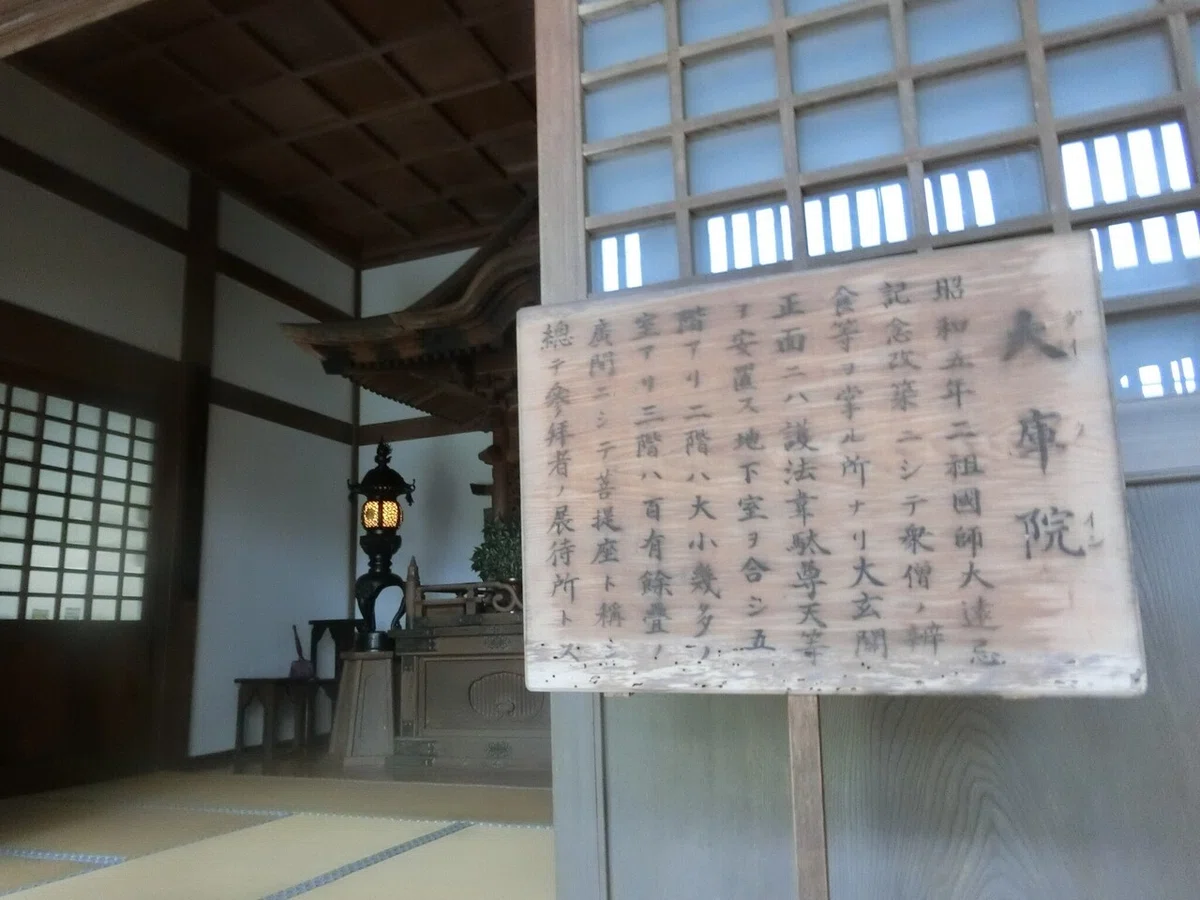 大庫院
昭和五年二祖國師大遠忌
記念改築ニシテ衆僧ノ辨
食等ヲ掌ル所ナリ大玄關
正面ニハ護法韋駄尊天等
ヲ安置ス地下室ヲ合シ五
階アリ二階ハ大小幾タノ
室アリ三階ハ百有餘疊ノ
廣間ニシテ菩提座ト稱シ
總テ參拜者ノ展待所トス